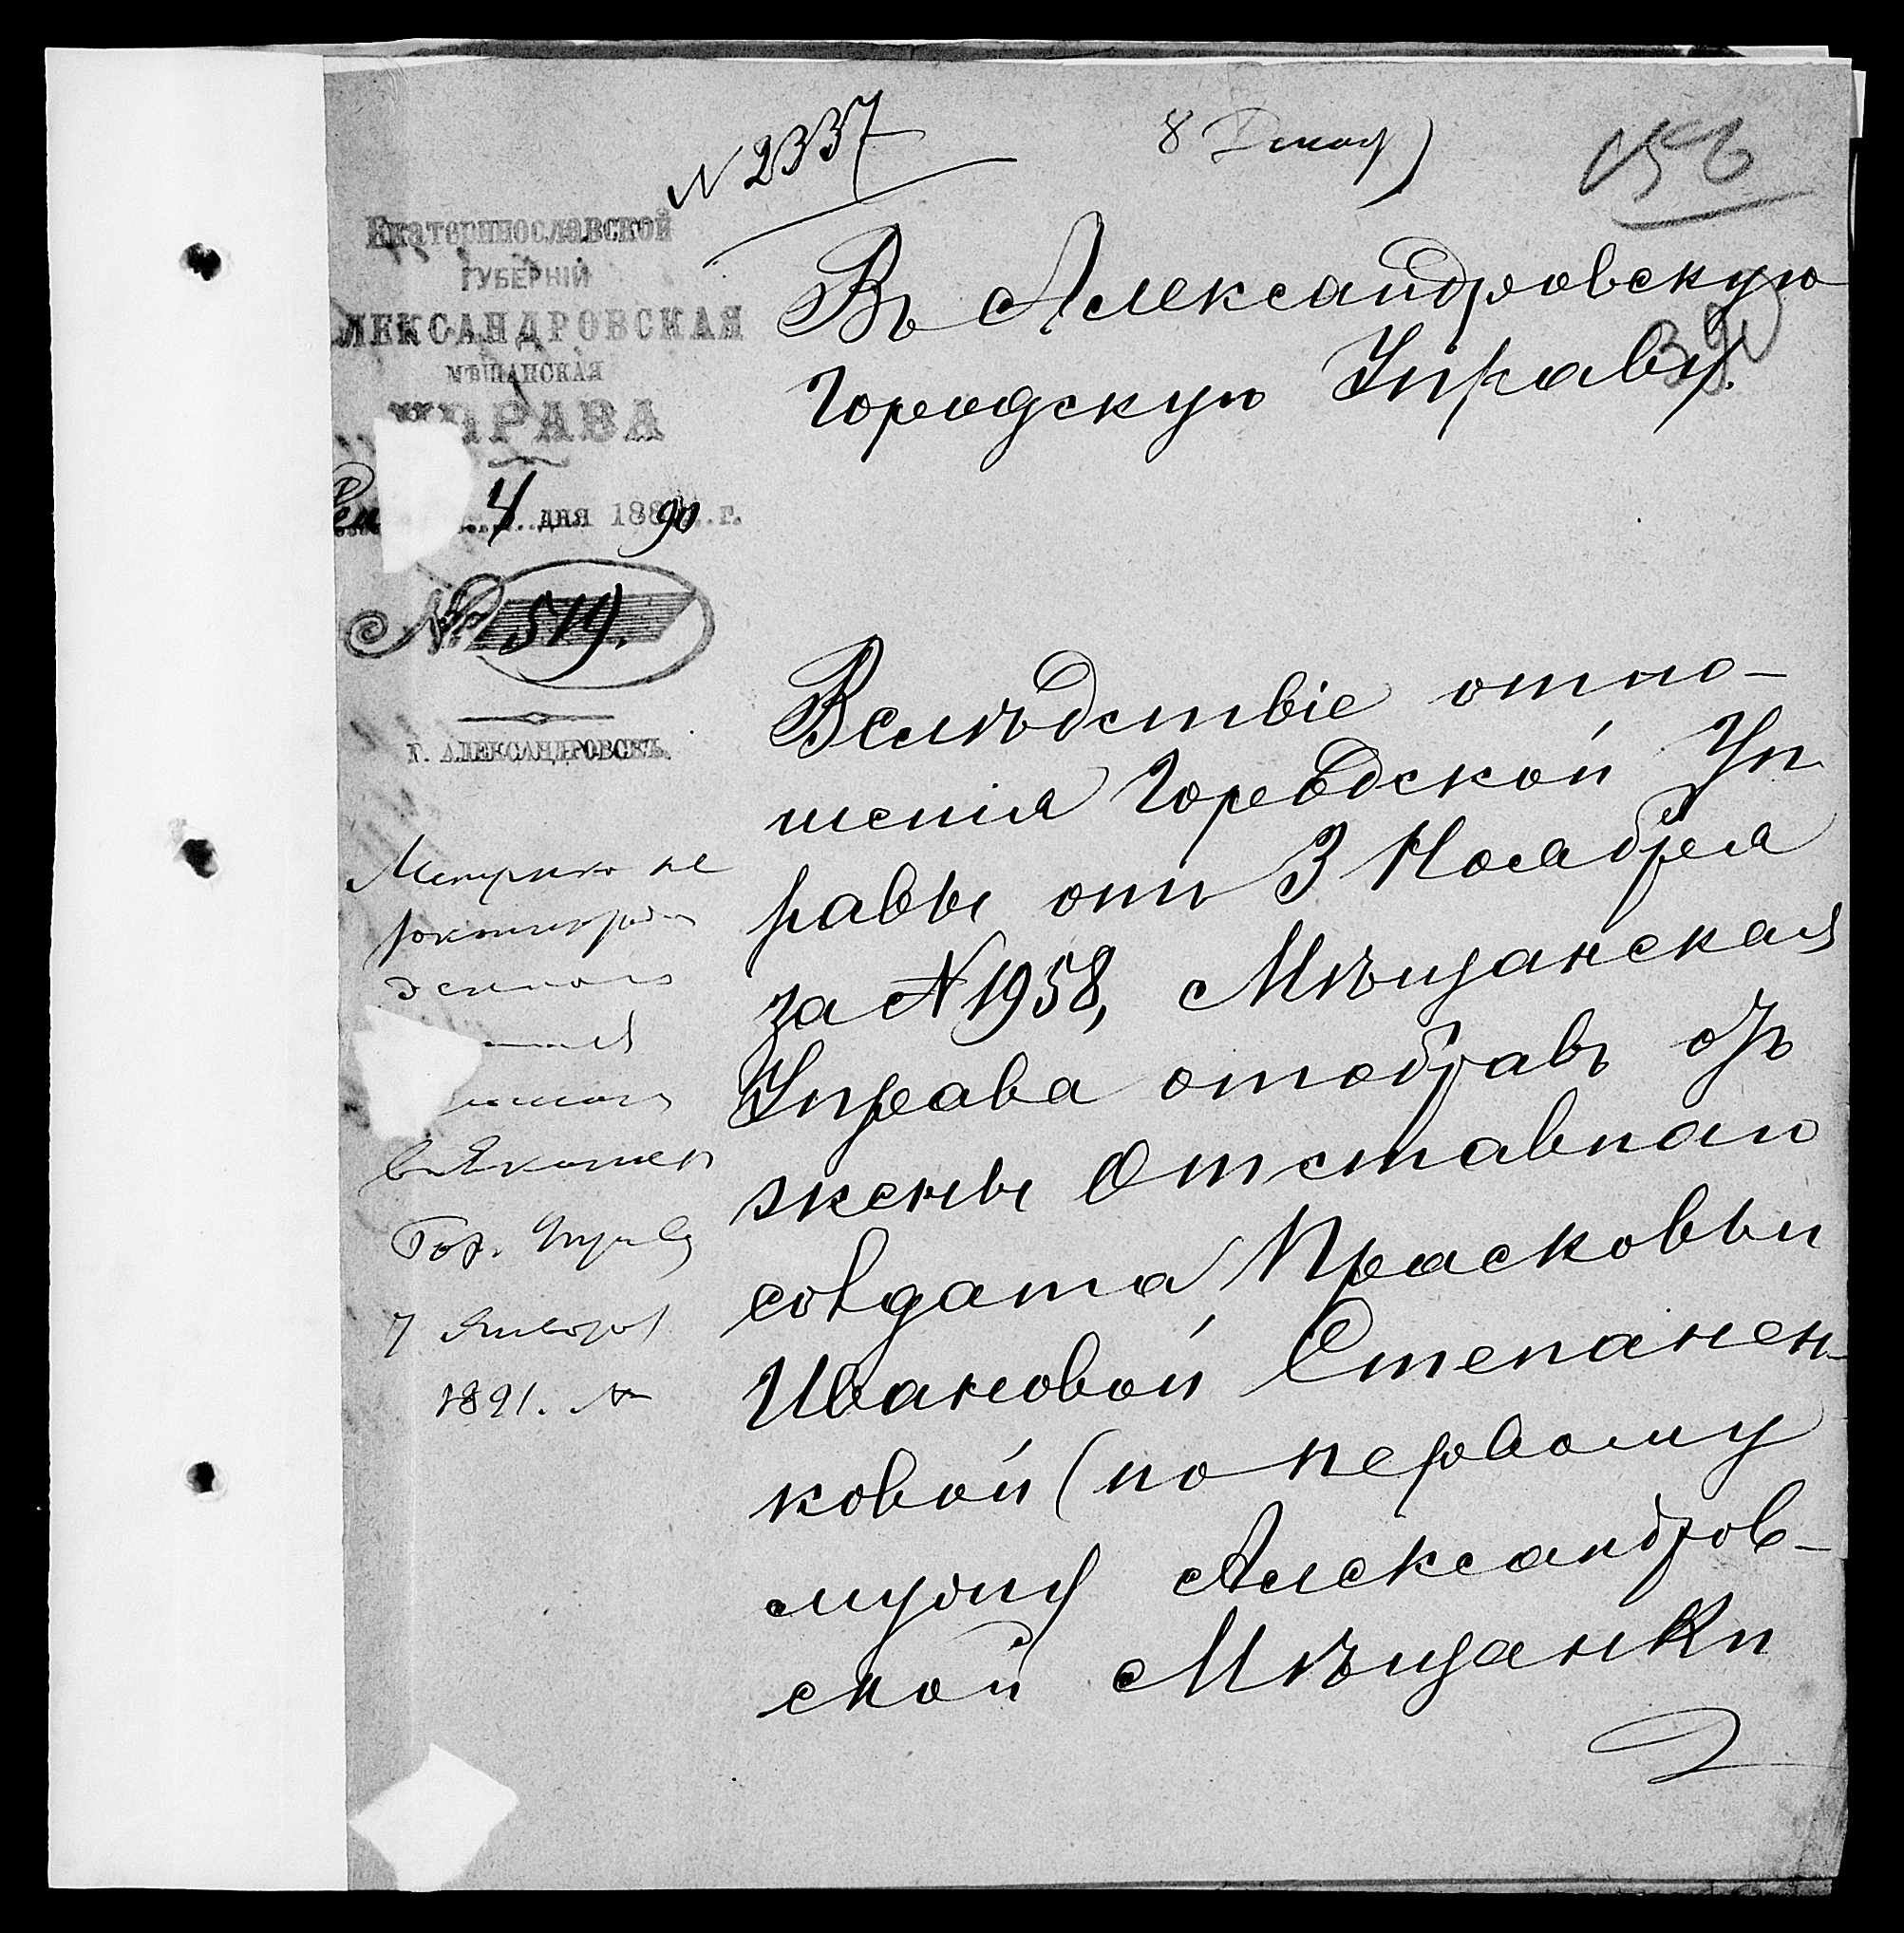 N 2337
8 Декаб)
156
39
Екатеринославской
ГУБЕРНІЙ
ЛЕКСАНДРОВСКАЯ
МѢЩАНСКАЯ
УПРАВА
4 дня 188 90 г.
№ 519.
Г. АЛЕКСАНДРОВСКЪ.
Въ Александровскую
Городскую Управу.
Вслѣдствіе отно-
шенія Городской Уп
равы отъ 3 Ноября
за N 1958, Мѣщанская
Управа отобравъ отъ
жены Отставнаго
солдата Прасковьи
Ивановой Степанен-
ковой (по первому
мужу Александров-
ской Мѣщанки
не
Гор. Управу
7 Января
1891. №